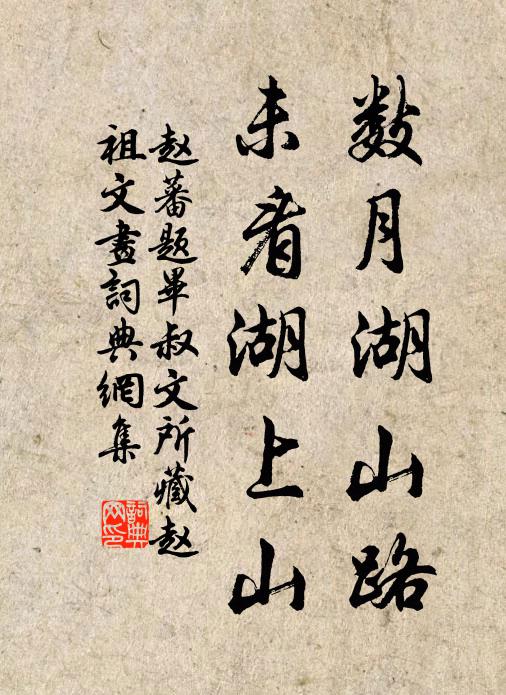 数月湖山路
未看湖上山
赵蕃题毕叔文所藏赵
祖文画詞典網集
詞典
网印